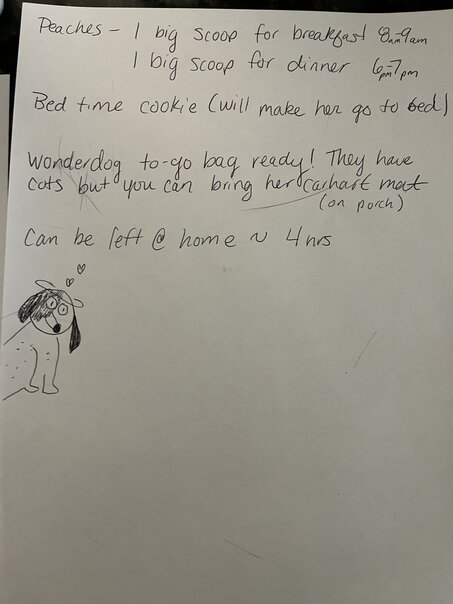 Peaches - 1 big scoop for breakfast 8am-9am
1 big scoop for dinner 6pm-7pm
Bed time cookie (will make her go to bed)
Wonderdog to-go bag ready! They have
cots but you can bring her carhart mat
(on porch)
Can be left @ home ~ 4hrs